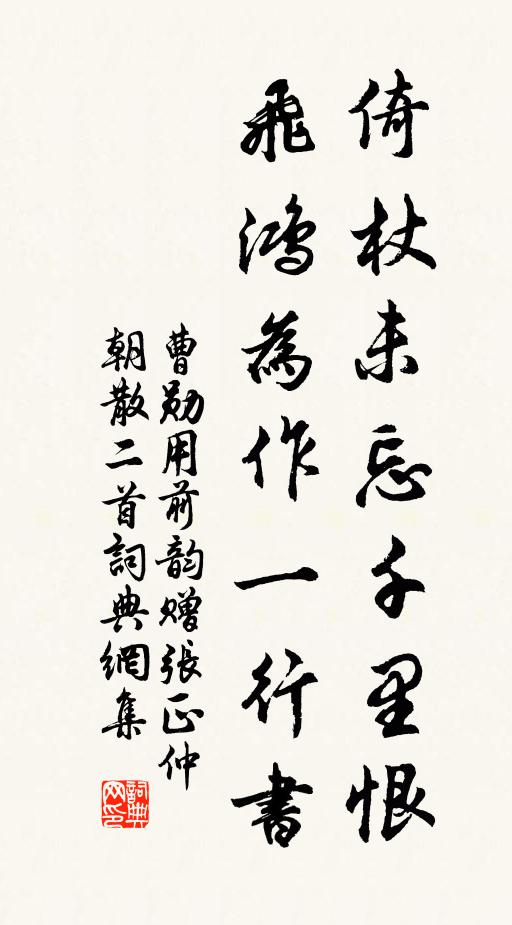 倚杖未忘千里恨
飛鴻為作一行書
曹勛用前韵赠張正仲
朝散二首詞典網集
詞典网印